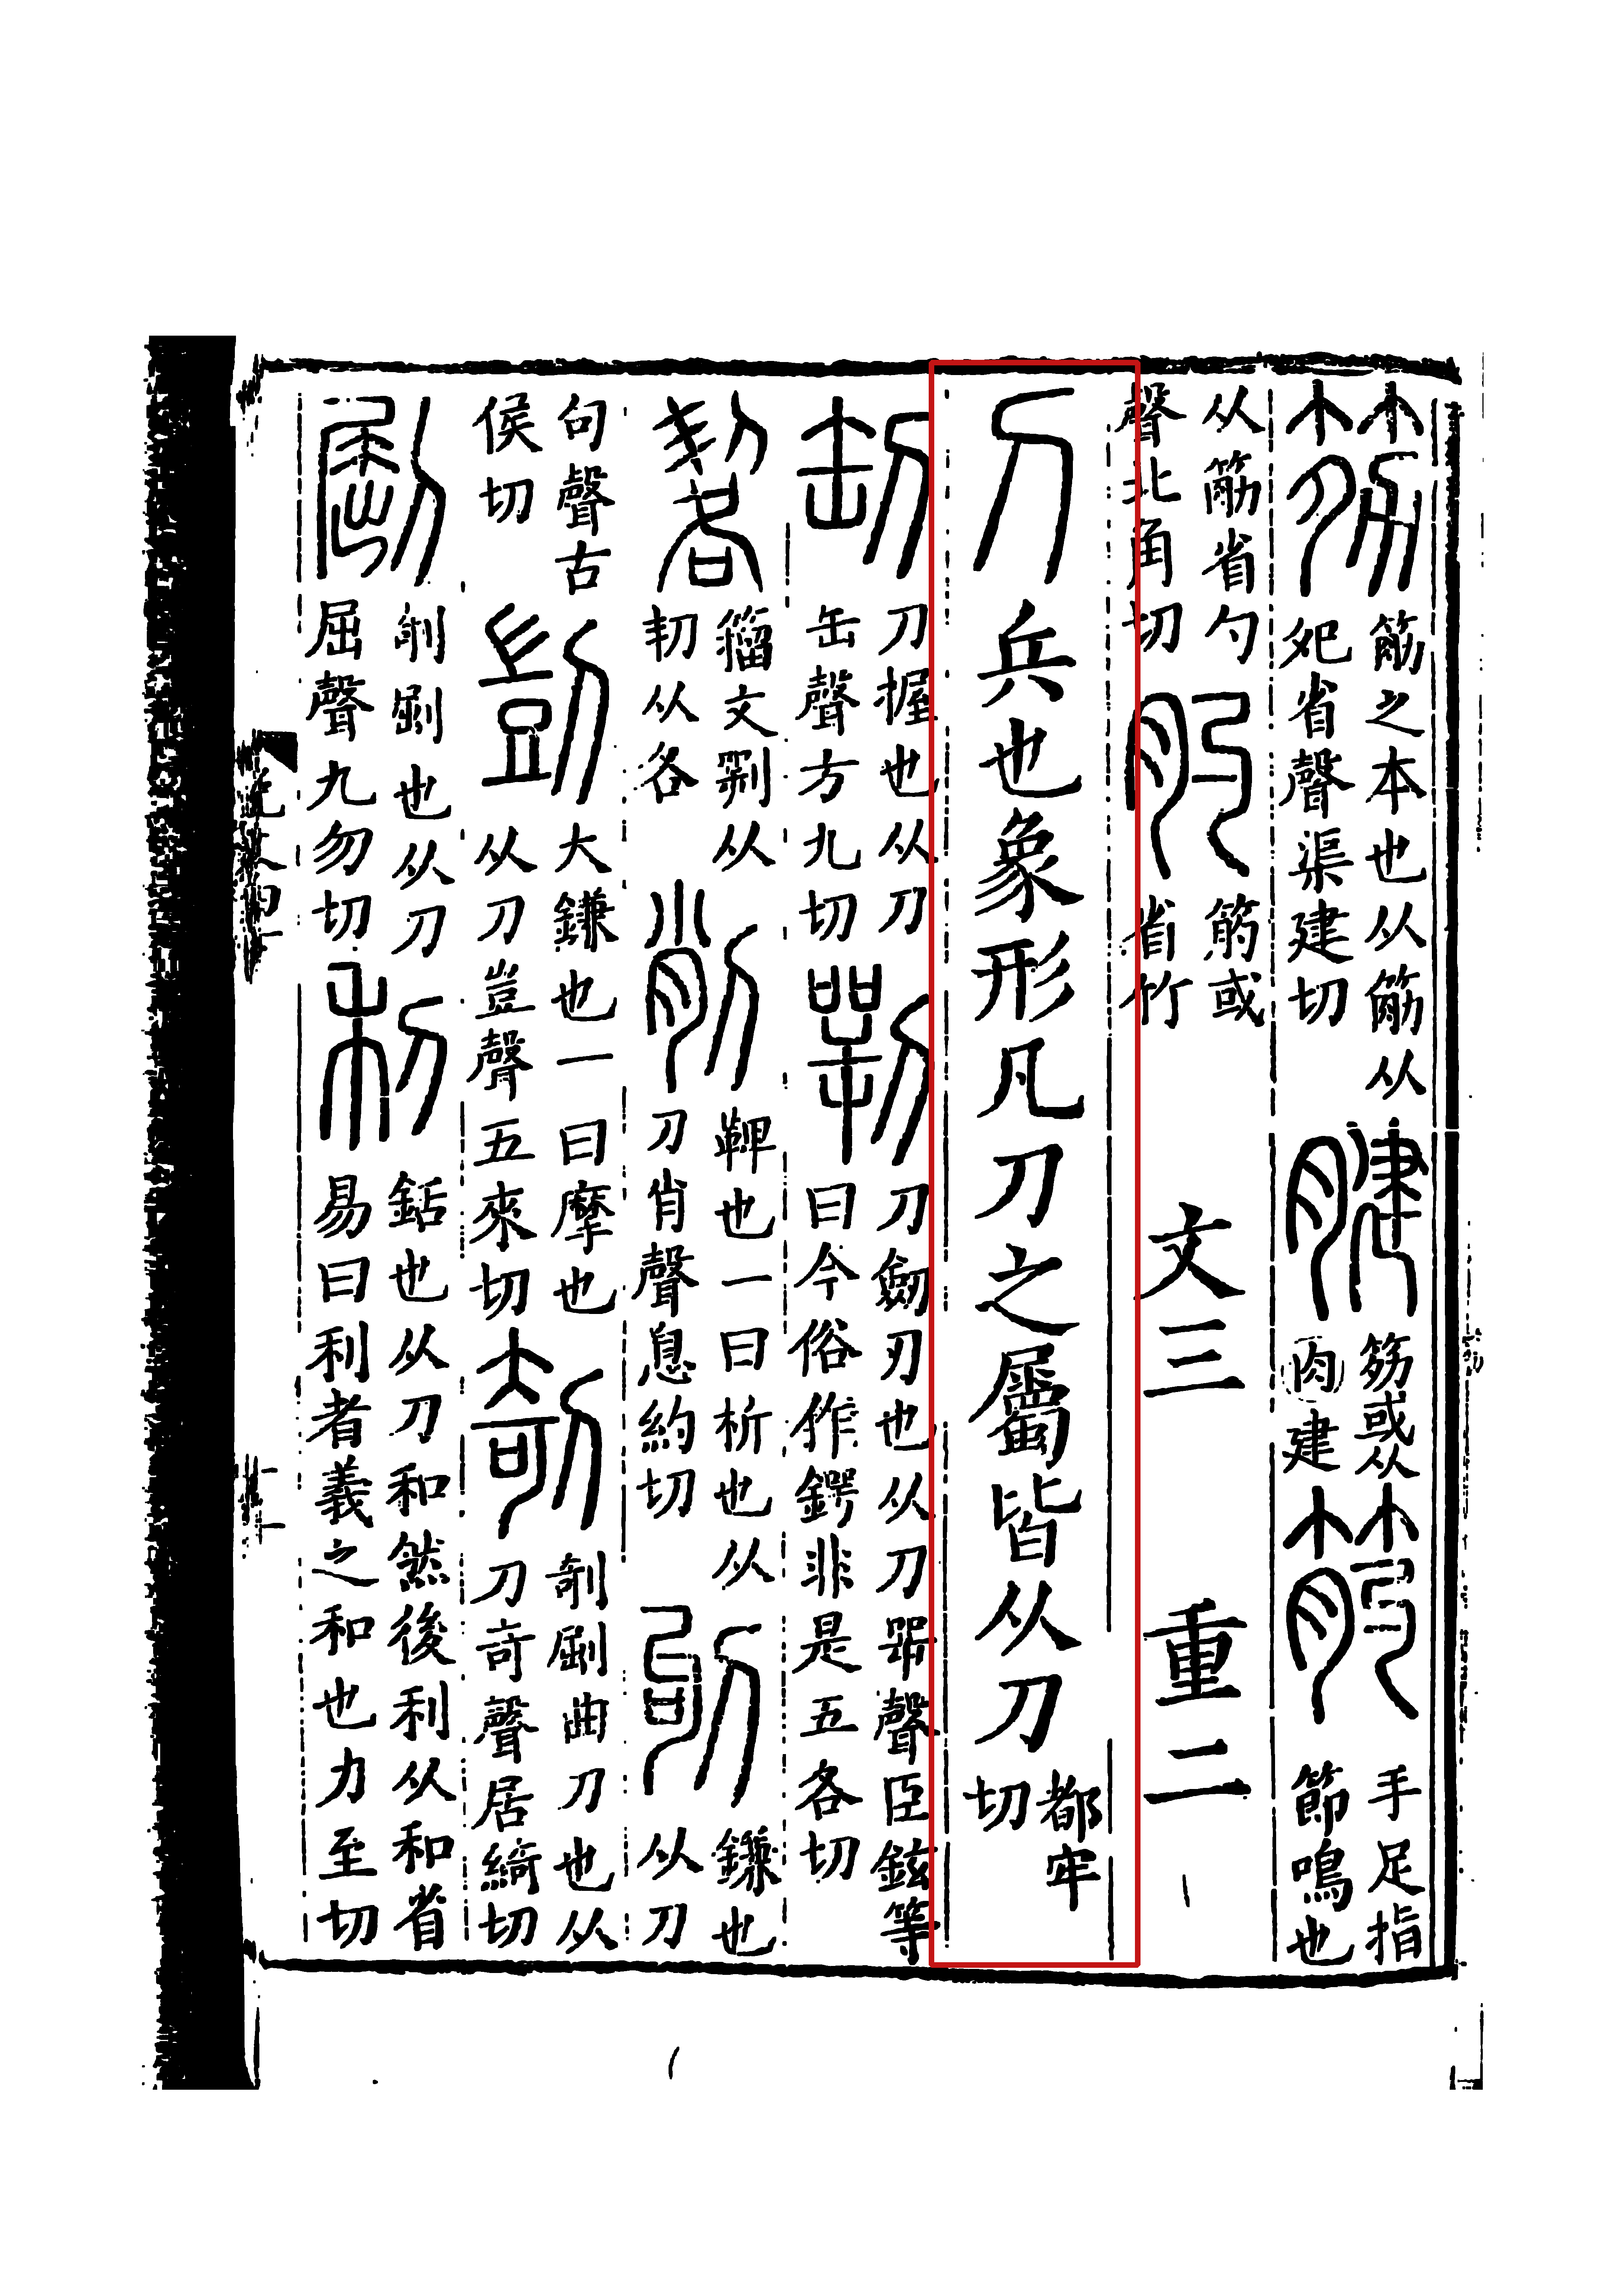 筋之本也从筋从
夗省聲渠建切
笏或从
肉建
手足指
節鳴也
从筋省勺
聲北角切
筋或
省竹
文三 重二
刀 兵也象形凡刀之屬皆从刀 都牢
切
刀握也从刀
缶聲方九切
刀劒刃也从刀咢聲臣鉉等
曰今俗作鍔非是五各切
籒文㓷从
㓞从各
鞞也一曰析也从
刀肖聲息約切
鎌也
从刀
句聲古
侯切
大鎌也一曰摩也
从刀豈聲五來切
剞劂曲刀也从
刀奇聲居綺切
剞劂也从刀
屈聲九勿切
銛也从刀和然後利从和省
易曰利者義之和也力至切